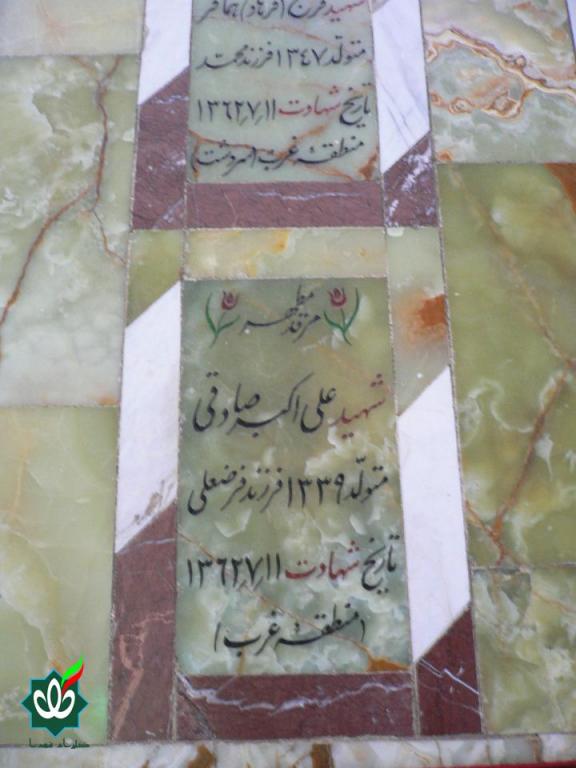 شهید فرج (فرهاد) هما فر
متولد ۱۳۴۷ فرزند محمد
تاریخ شهادت ۱۳۶۲٫۷٫۱۱
منطقه غرب (سردشت)
مرقد مطهر
شهید علی اکبر صادقی
متولّد ۱۳۳۹ فرزند فرضعلی
تاریخ شهادت ۱۳۶۲٫۷٫۱۱
(منطقه غرب)